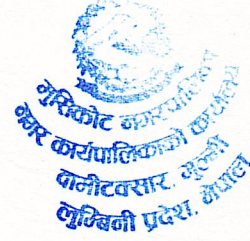 मुसिकोट नगरपालिका
नगर कार्यपालिकाको कार्यालय
वामीटक्सार, गुल्मी
लुम्बिनी प्रदेश, नेपाल